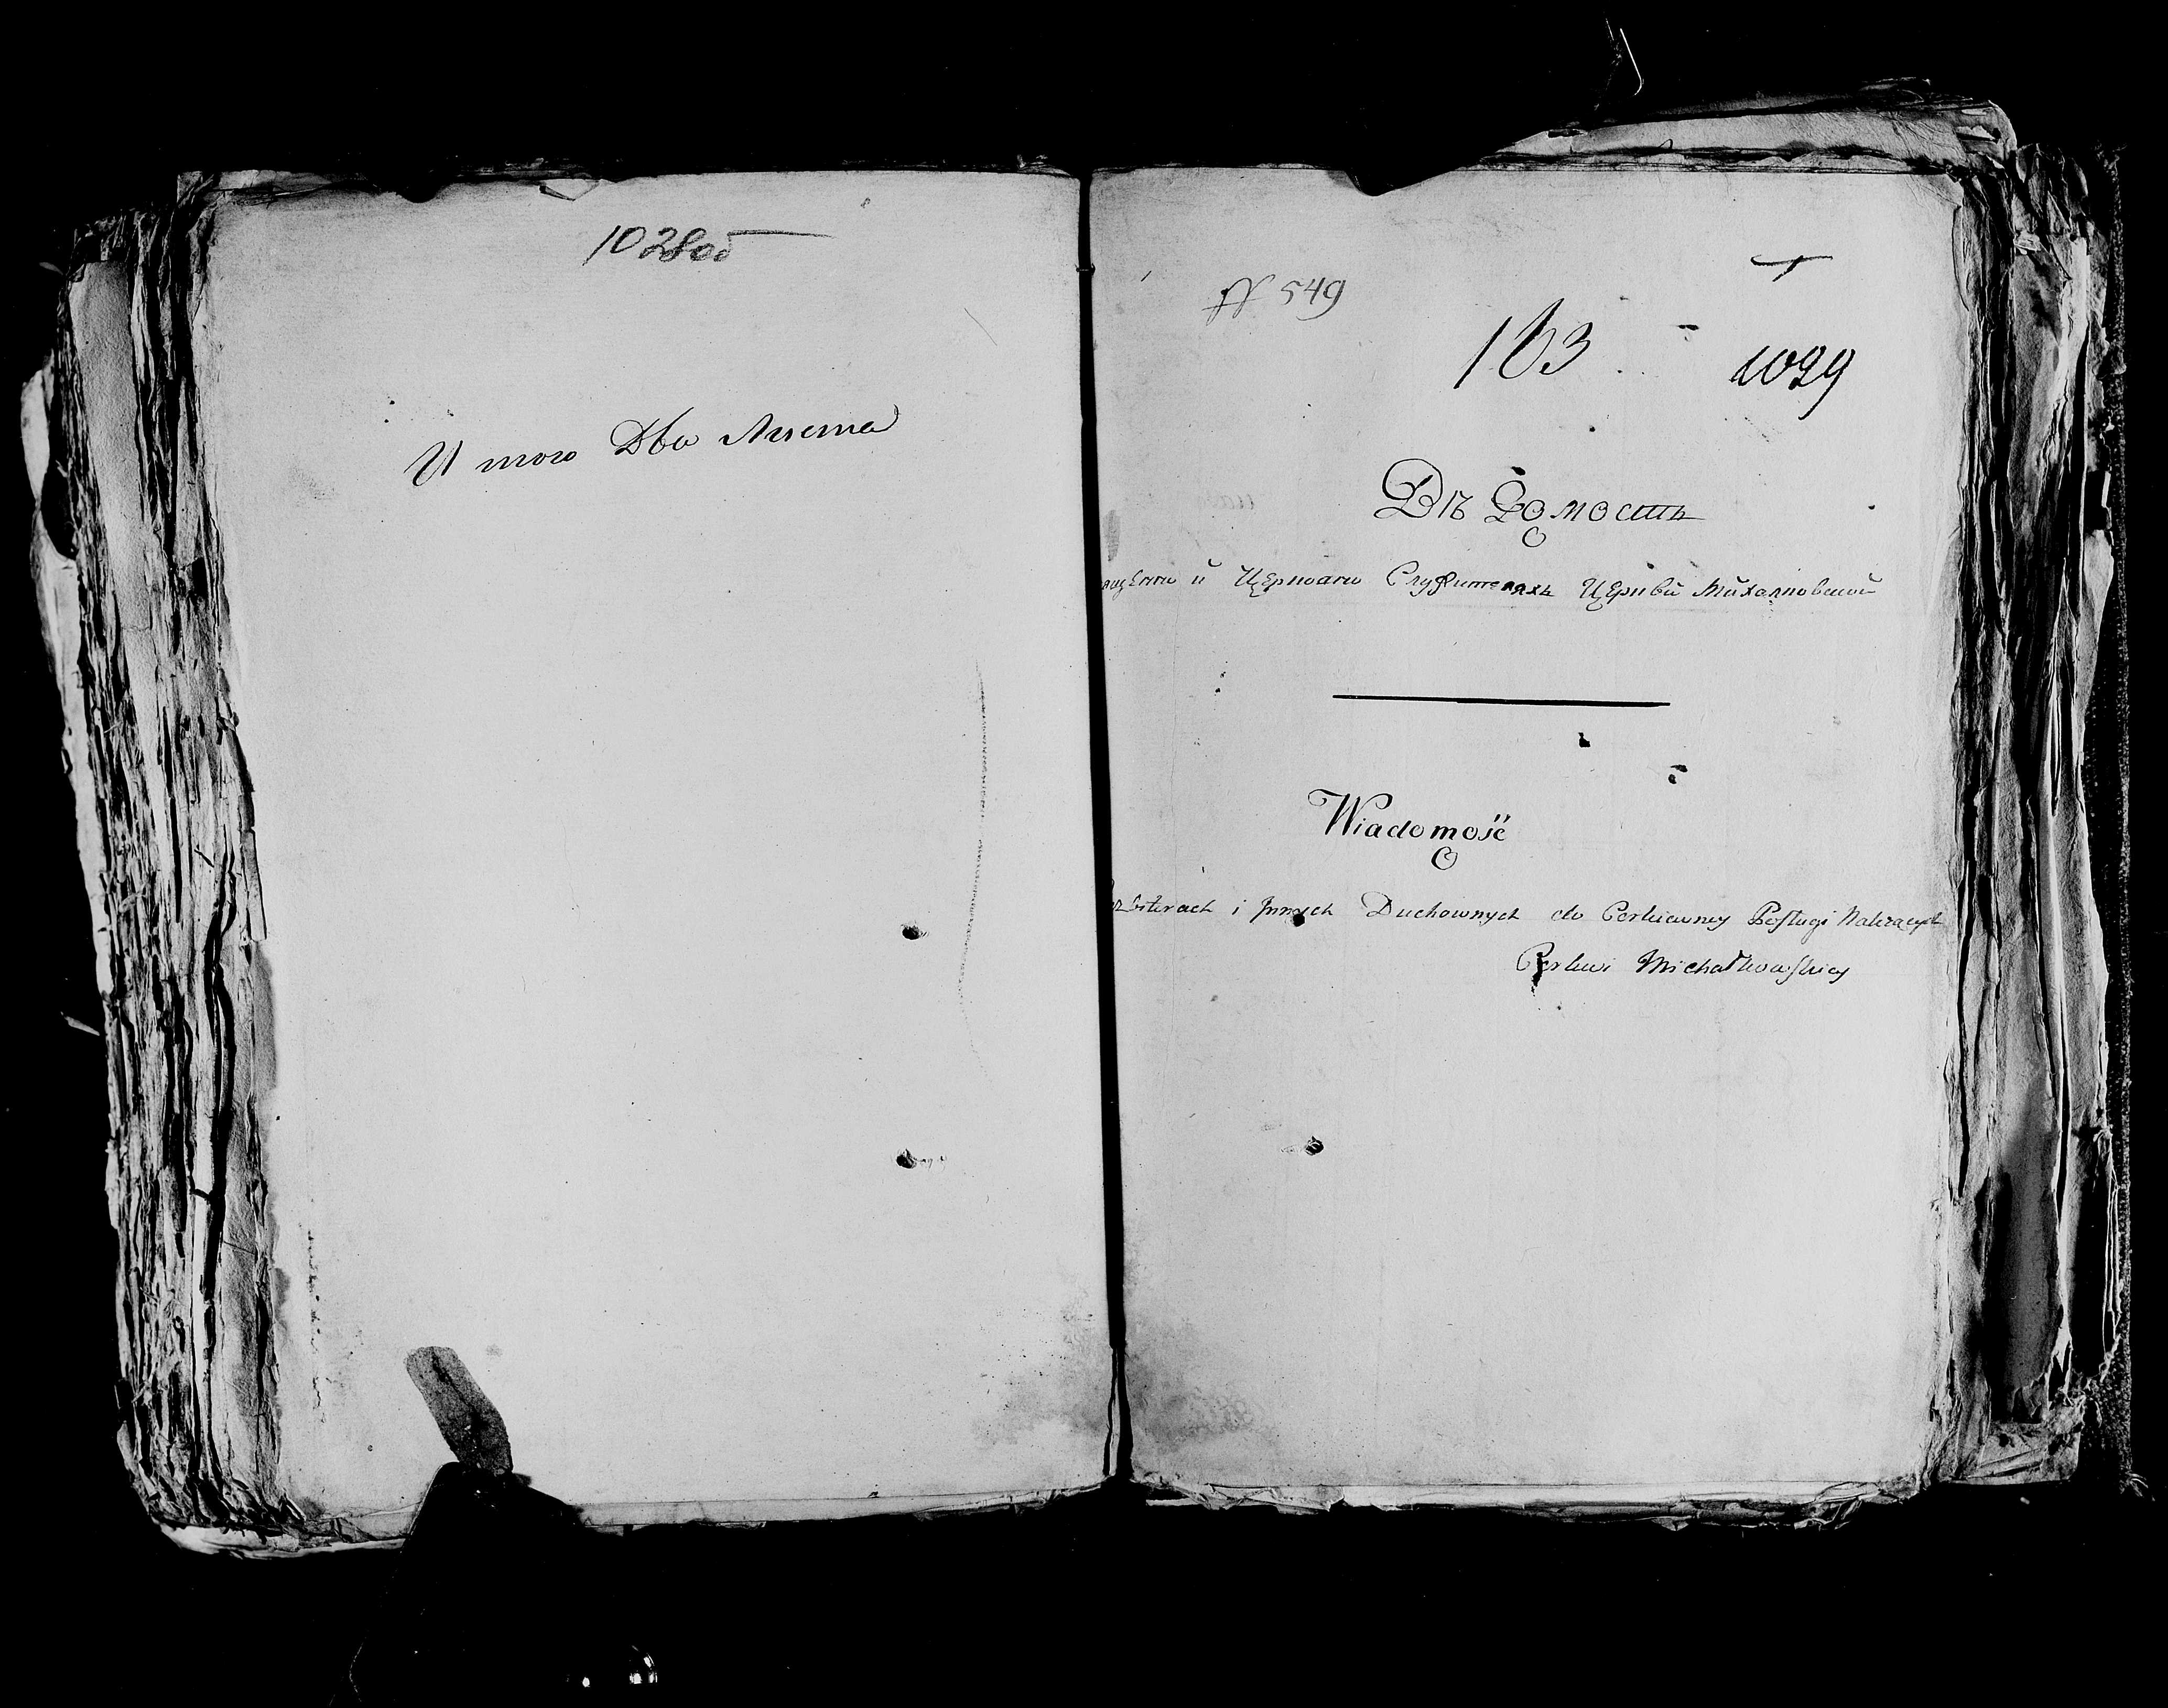 1028 об
И того Два Листа
№ 549
163
1029
Вѣдомость
Церковно Служителяхъ Церкви Михалковской
Wiadomość
i Jnnych Duchownych do Cerkiewney Posługi Należących
Cerkwi Michałkowskiey